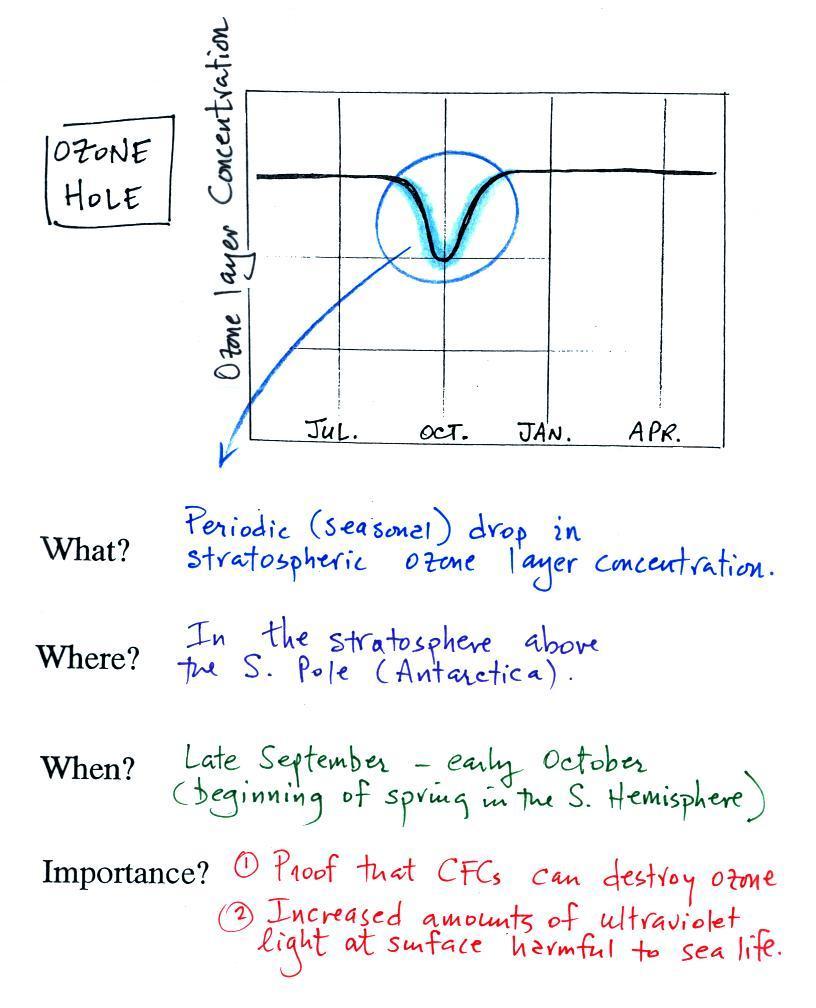 Ozone layer Concentration
OZONE
HOLE
JUL. OCT. JAN. APR.
What? Periodic (seasonal) drop in
stratospheric ozone layer concentration.
Where? In the stratosphere above
the S. Pole (Antarctica).
When? Late September - early October
(beginning of spring in the S. Hemisphere)
Importance? ① Proof that CFCs can destroy ozone
② Increased amounts of ultraviolet
light at surface harmful to sea life.